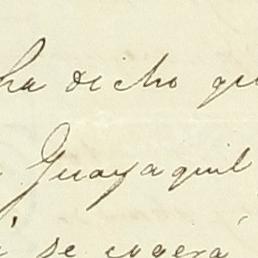 ha dicho qu
Guayaquil
se cogerá